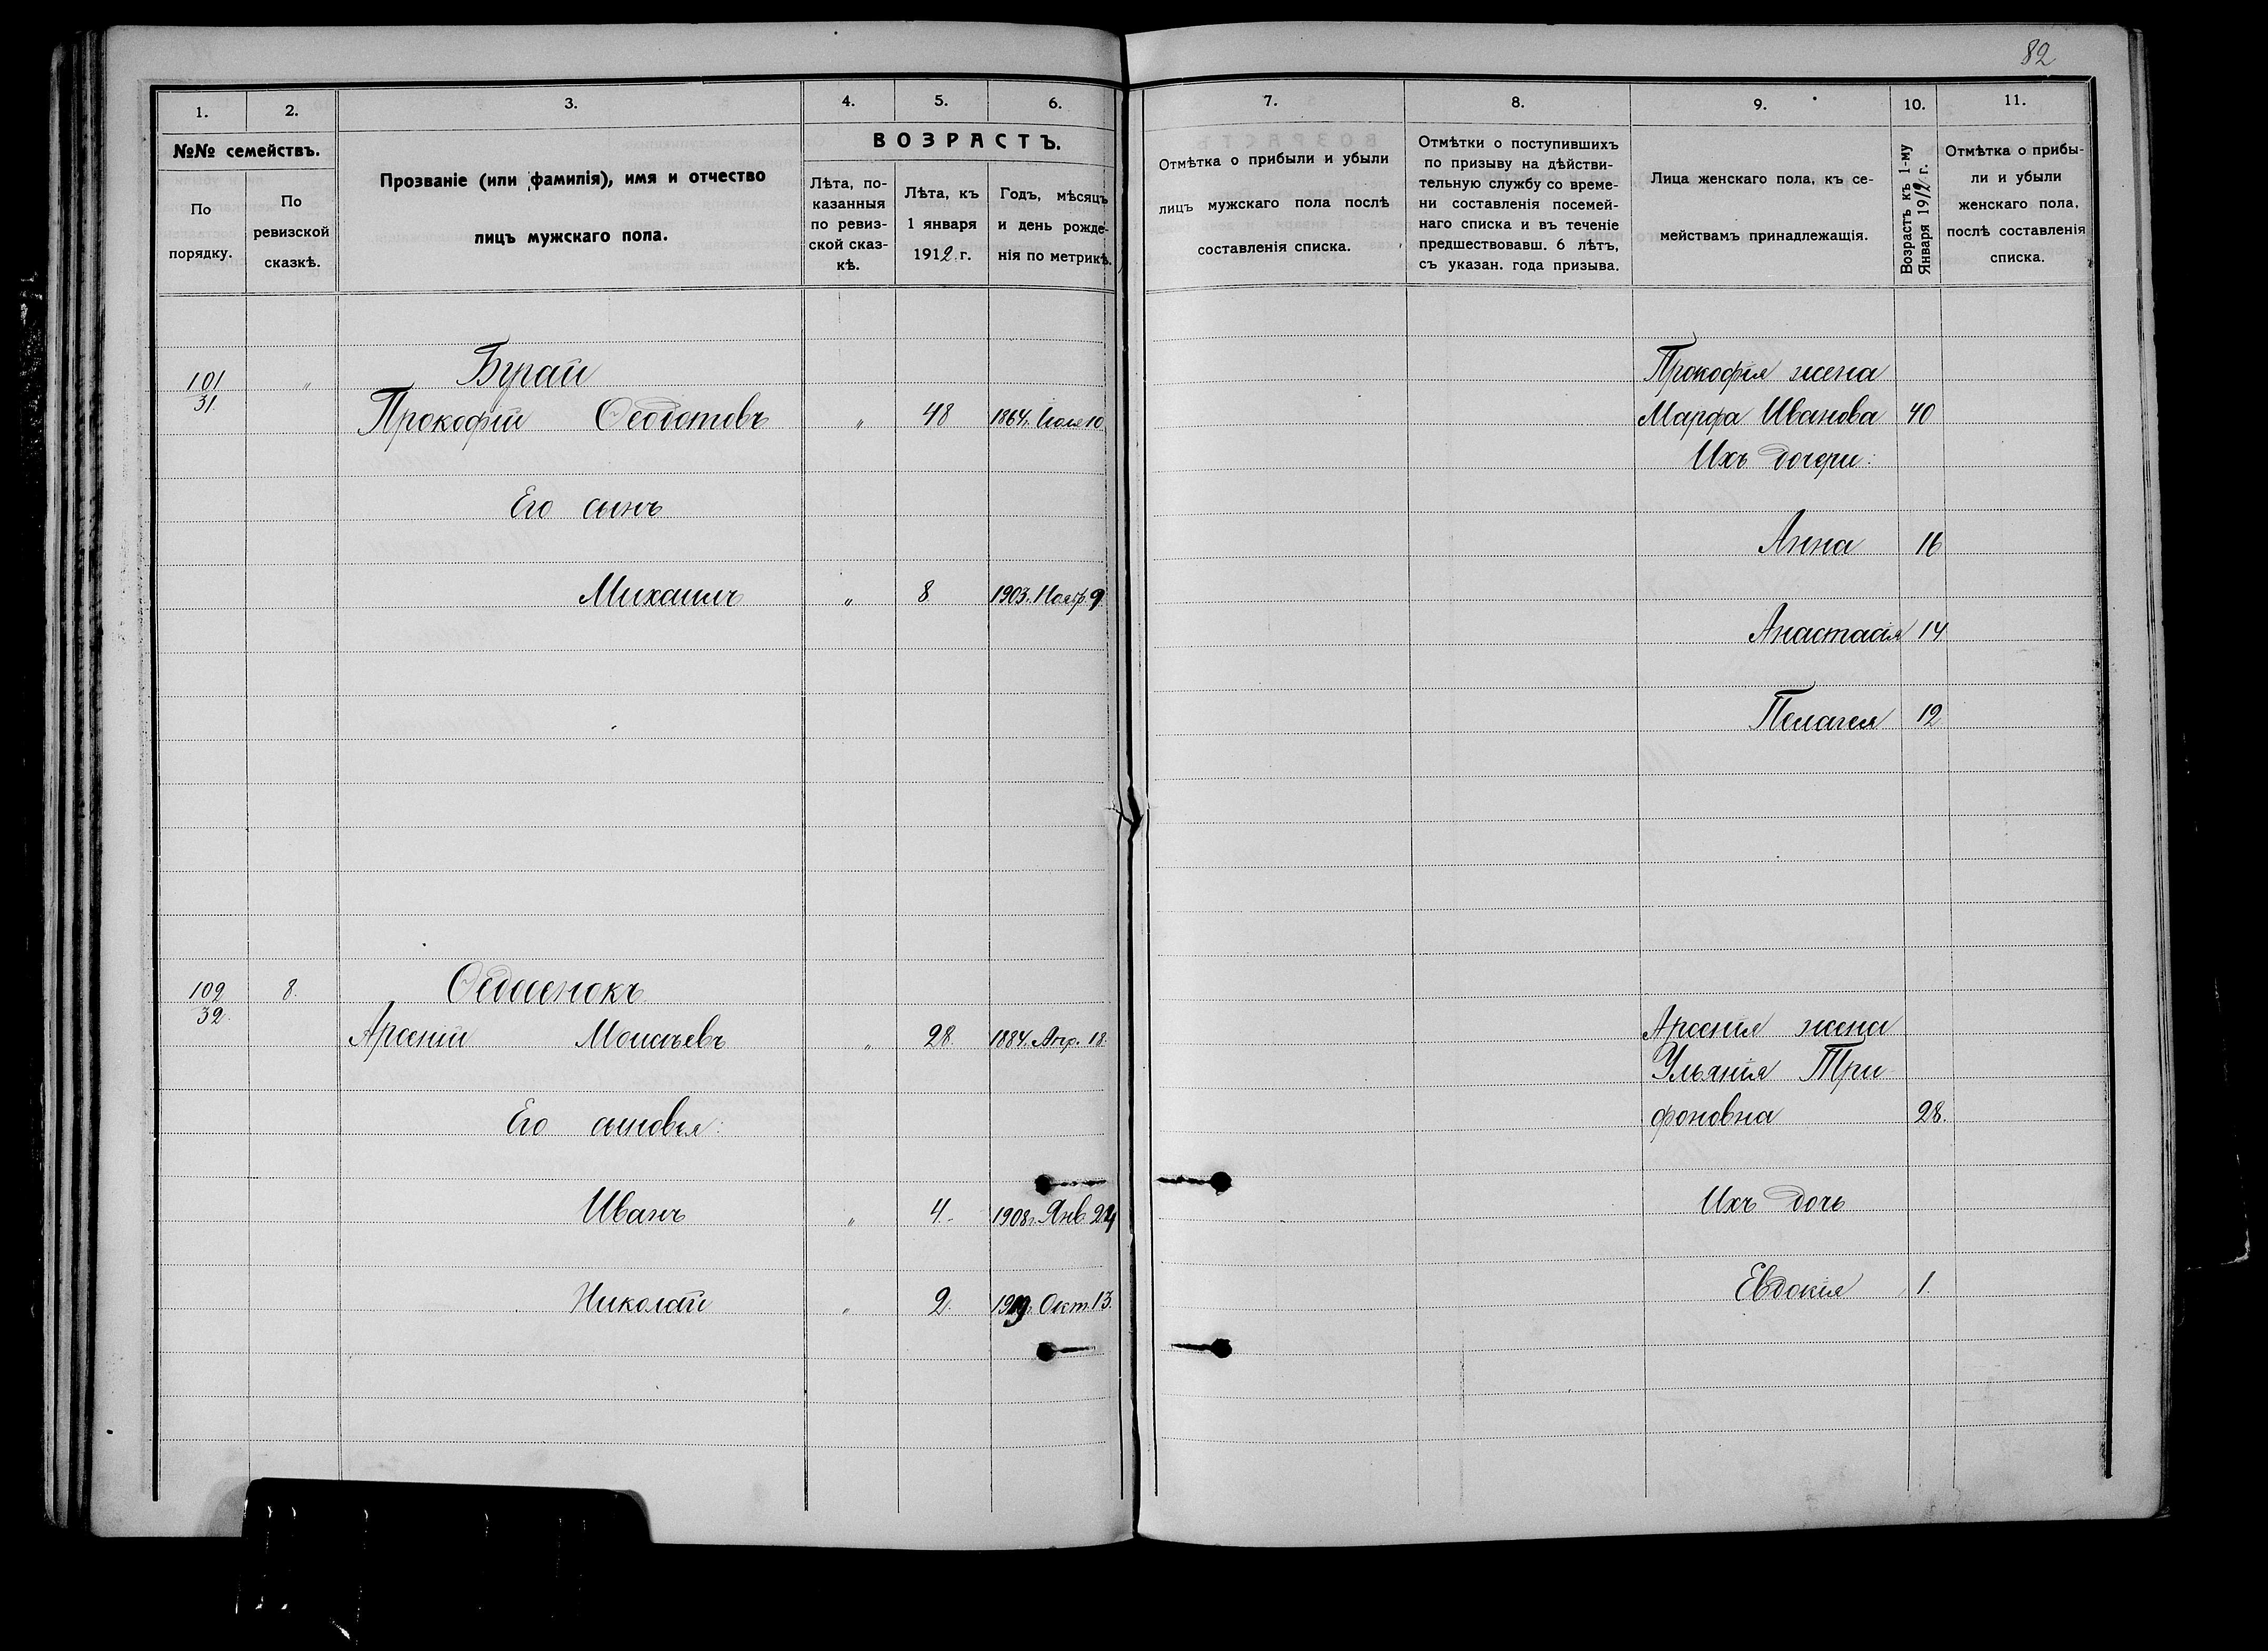 82
1. 2. 3. 4. 5. 6.
№№ семействъ.
По порядку.
По ревизской сказкѣ.
Прозваніе (или фамилія), имя и отчество
лицъ мужскаго пола.
ВОЗРАСТЪ.
Лѣта, по-
казанныя
по ревиз-
ской сказ-
кѣ.
Лѣта, къ
1 января
1912 г.
Годъ, мѣсяцъ
и день рожде-
нія по метрикѣ.
101 " Бурай
31.
Прокофій Ѳедотовъ " 48 1864 г. Іюля 10
Его сынъ
Михаилъ " 8 1903. Нояб. 9
109 8. Ѳедосенокъ
32.
Арсеній Моисѣевъ " 28. 1884. Апр. 18.
Его сыновья:
Иванъ " 4. 1908 г. Янв 24
Николай " 2. 1909 г. Окт. 13.
7. 8. 9. 10. 11.
Отмѣтка о прибыли и убыли
лицъ мужскаго пола послѣ
составленія списка.
Отмѣтки о поступившихъ
по призыву на дѣйстви-
тельную службу со време-
ни составленія посемей-
наго списка и въ теченіе
предшествовавш. 6 лѣтъ,
съ указан. года призыва.
Лица женскаго пола, къ се-
мействамъ принадлежащія.
Возрастъ къ 1-му
Января 1912 г.
Отмѣтка о прибы-
ли и убыли
женскаго пола,
послѣ составленія
списка.
Прокофія жена
Марфа Иванова 40
Ихъ дочери:
Анна 16
Анастасія 14
Пелагея 12
Арсенія жена
Ульянія Три
фоновна 28.
Ихъ дочь
Евдокія 1.